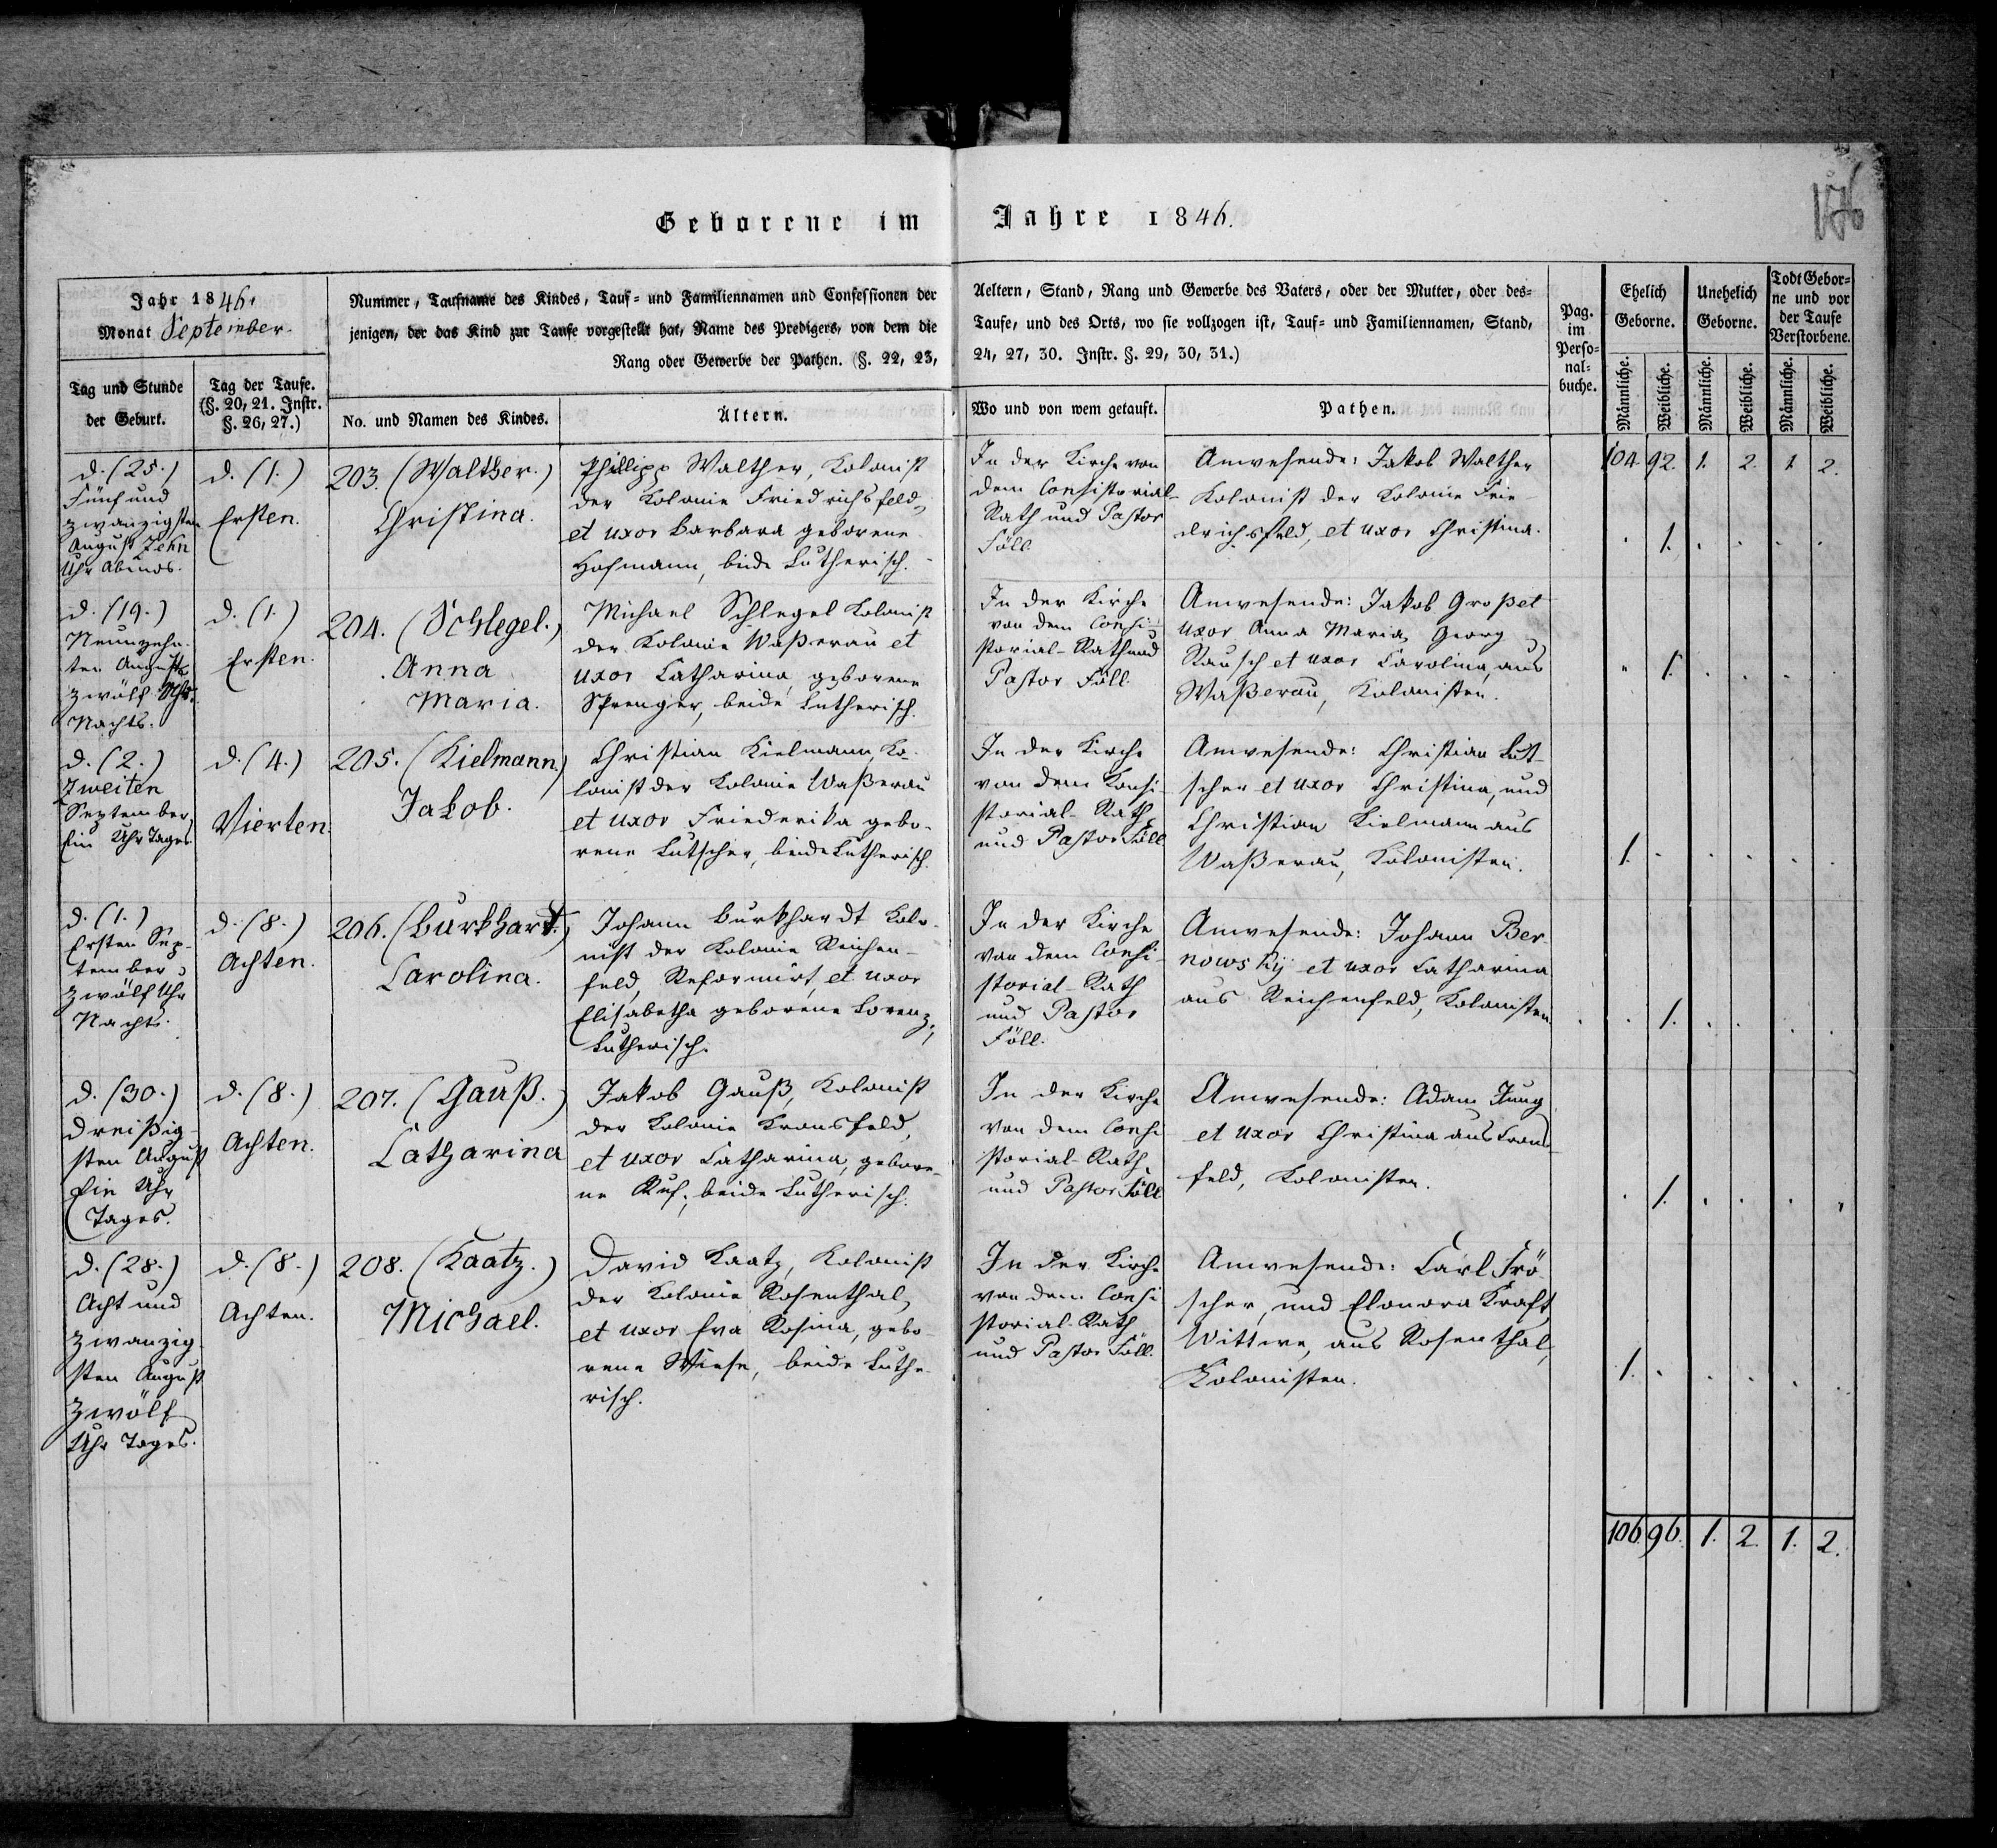 Geborene im Jahre 1846.
176
Jahr 1846.
Monat September.
Nummer, Taufname des Kindes, Tauf- und Familiennamen und Confessionen der Aeltern, Stand, Rang und Gewerbe des Vaters, oder der Mutter, oder des-
jenigen, der das Kind zur Taufe vorgestellt hat, Name des Predigers, von dem die Taufe, und des Orts, wo sie vollzogen ist, Tauf- und Familiennamen, Stand,
Rang oder Gewerbe der Pathen. (§. 22, 23, 24, 27, 30. Instr. §. 29, 30, 31.)
Pag.
im
Perso-
nal-
buche.
Ehelich
Geborne.
Unehelich
Geborne.
Todt Gebor-
ne und vor
der Taufe
Verstorbene.
Tag und Stunde
der Geburt.
Tag der Taufe.
(§. 20, 21. Instr.
§. 26, 27.)
No. und Namen des Kindes.
Ältern.
Wo und von wem getauft.
Pathen.
Männliche.
Weibliche.
Männliche.
Weibliche.
Männliche.
Weibliche.
104. 92. 1. 2. 1. 2.
d. (25.)
Fünf und
zwanzigsten
August Zehn
Uhr Abends.
d. (1.)
Ersten.
203. (Walther.)
Christina.
Phillipp Walther, Kolonist
der Kolonie Friedrichsfeld,
et uxor Barbara geborene
Hofmann, beide Lutherisch.
In der Kirche von
dem Consistorial-
Rath und Pastor
Föll.
Anwesende: Jakob Walther
Kolonist der Kolonie Frie-
drichsfeld, et uxor Christina.
. 1. . . . .
d. (19.)
Neunzehn-
ten August
zwölf Uhr
Nachts.
d. (1.)
Ersten.
204. (Schlegel.)
Anna
Maria.
Michael Schlegel Kolonist
der Kolonie Waßerau et
uxor Catharina, geborene
Sprenger, beide Lutherisch.
In der Kirche
von dem Consi-
storial-Rath und
Pastor Föll.
Anwesende: Jakob Groß et
uxor Anna Maria, Georg
Rausch et uxor Carolina, aus
Waßerau, Kolonisten.
. 1. . . . .
d. (2.)
Zweiten
September,
Ein Uhr Tages
d. (4.)
Vierten.
205. (Kielmann.)
Jakob.
Christian Kielmann, Ko-
lonist der Kolonie Waßerau
et uxor Friederika gebo-
rene Lutscher, beide Lutherisch.
In der Kirche
von dem Konsi-
storial-Rath
und Pastor Föll
Anwesende: Christian Lut-
scher et uxor Christina, und
Christian Kielmann aus
Waßerau, Kolonisten.
1. . . . . .
d. (1.)
Ersten Sep-
tember,
zwölf Uhr
Nachts.
d. (8.)
Achten.
206. (Burkhart.)
Carolina.
Johann Burkhardt Kolo-
nist der Kolonie Reichen-
feld, Reformirt, et uxor
Elisabetha geborene Lorenz,
Lutherisch.
In der Kirche
von dem Consi-
storial-Rath
und Pastor
Föll.
Anwesende: Johann Ber-
nowskij et uxor Catharina
aus Reichenfeld, Kolonisten.
. 1. . . . .
d. (30.)
Dreißig-
sten August
Ein Uhr
Tages.
d. (8.)
Achten.
207. (Gauß.)
Catharina
Jakob Gauß, Kolonist
der Kolonie Kronsfeld,
et uxor Catharina, gebore-
ne Ruf, beide Lutherisch.
In der Kirche
von dem Consi
storial-Rath
und Pastor Föll
Anwesende: Adam Jung
et uxor Christina aus Crons
feld, Kolonisten.
. 1. . . . .
d. (28.)
Acht und
zwanzig
sten August
zwölf
Uhr Tages.
d. (8.)
Achten.
208. (Kaatz.)
Michael.
David Kaatz, Kolonist
der Kolonie Rosenthal,
et uxor Eva Rosina, gebo-
rene Wiese, beide Luthe-
risch.
In der Kirche
von dem Consi
storial-Rath
und Pastor Föll.
Anwesende: Carl Frö-
scher, und Elonora Kraft,
Wittwe, aus Rosenthal,
Kolonisten.
1. . . . . .
106. 96. 1. 2. 1. 2.